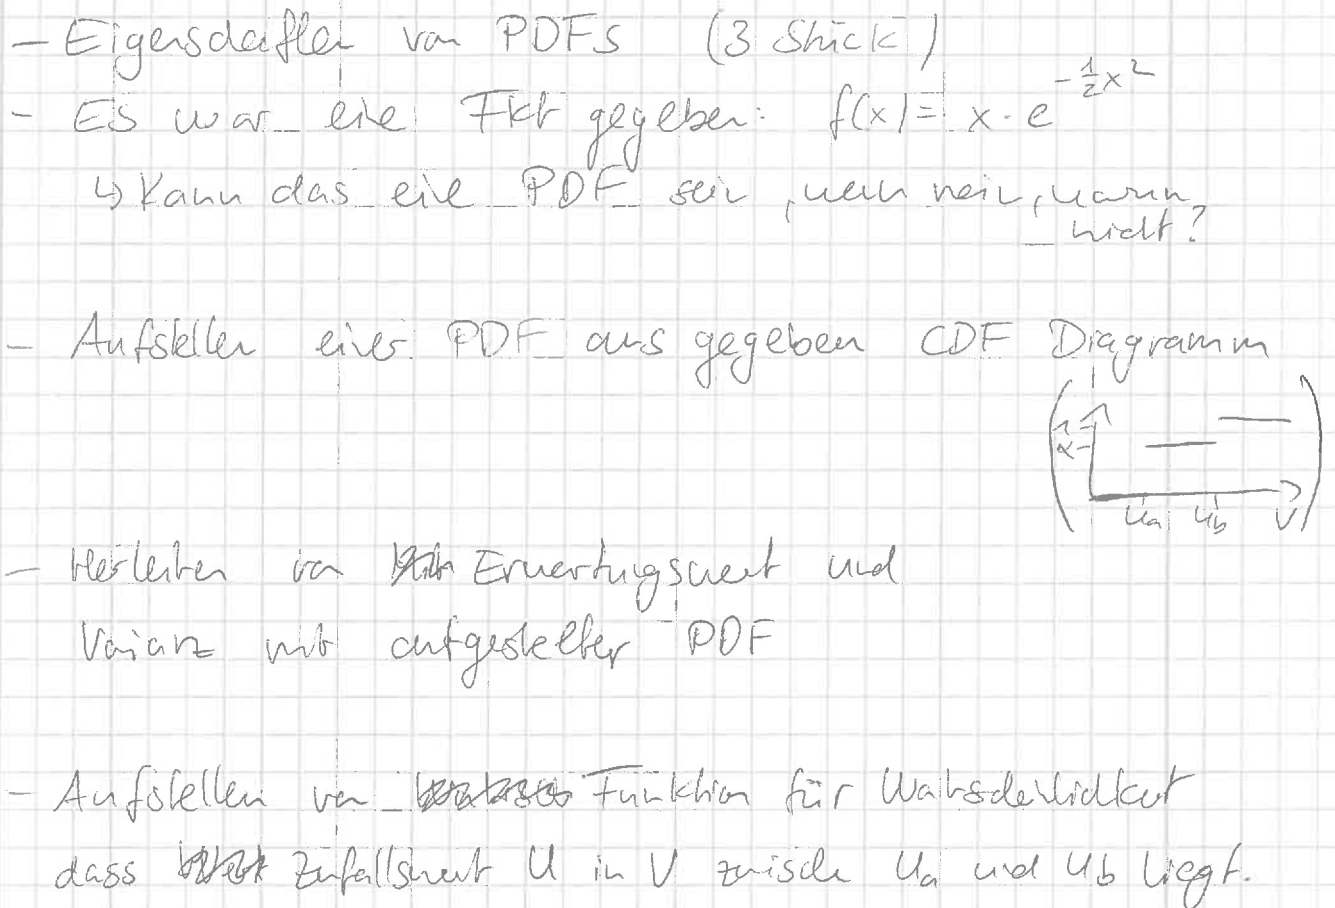 - Eigenschaften von PDFs (3 Stück)
- Es war eine Fkt gegeben: f(x) = x · e^{-\frac{1}{2}x^2}
↳ Kann das eine PDF sein, wenn nein, warum
nicht?
- Aufstellen einer PDF aus gegeben CDF Diagramm
1
α
u_a u_b V
- Herleiten von Erwartungswert und
Varianz mit aufgestellter PDF
- Aufstellen von Funktion für Wahrscheinlichkeit
dass Zufallswert U in V zwische u_a und u_b liegt.